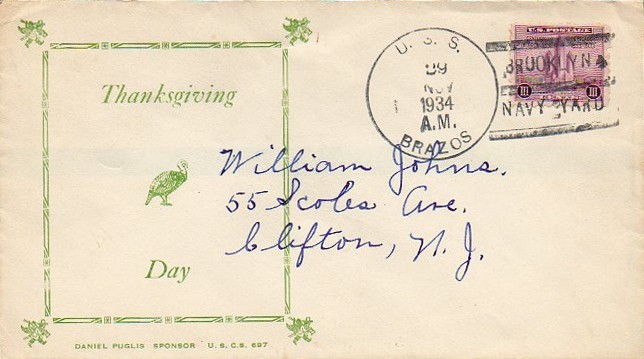 Thanksgiving
Day
DANIEL PUGLIS SPONSOR U.S.C.S. 697
U. S. S.
29
NOV
1934
A.M.
BRAZOS
U.S. POSTAGE
III III
BROOKLYN
NAVY YARD
William Johns.
55 Scoles Ave.
Clifton, N. J.